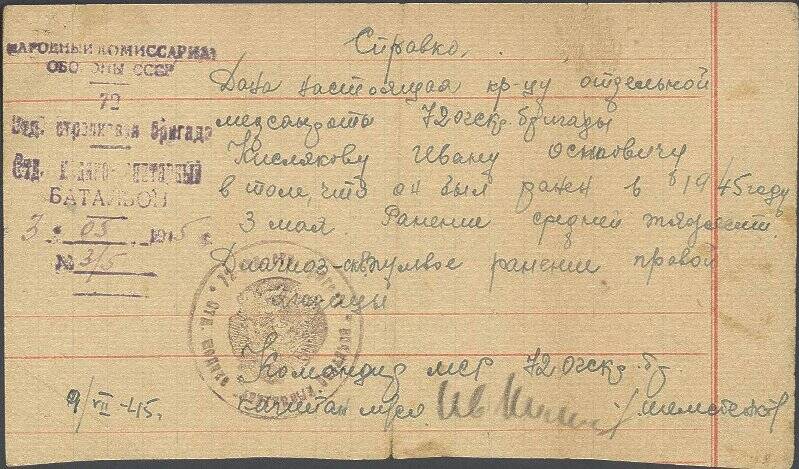 НАРОДНЫЙ КОМИССАРИАТ
ОБОРОНЫ СССР
72
Отд. стрелковая бригада
Отд.
БАТАЛЬОН
3 05 1945 г.
№ 315
Справка.
Дана настоящая кр-цу отдельной
медсанроты 72 огскр. бригады
Кислякову Ивану Осиповичу
в том, что он был ранен в 1945 году
3 мая. Ранение средней тяжести.
Диагноз - скв. пулевое ранение правой
Командир мср 72 огскр. бр.
капитан м/с
9/VII-45.